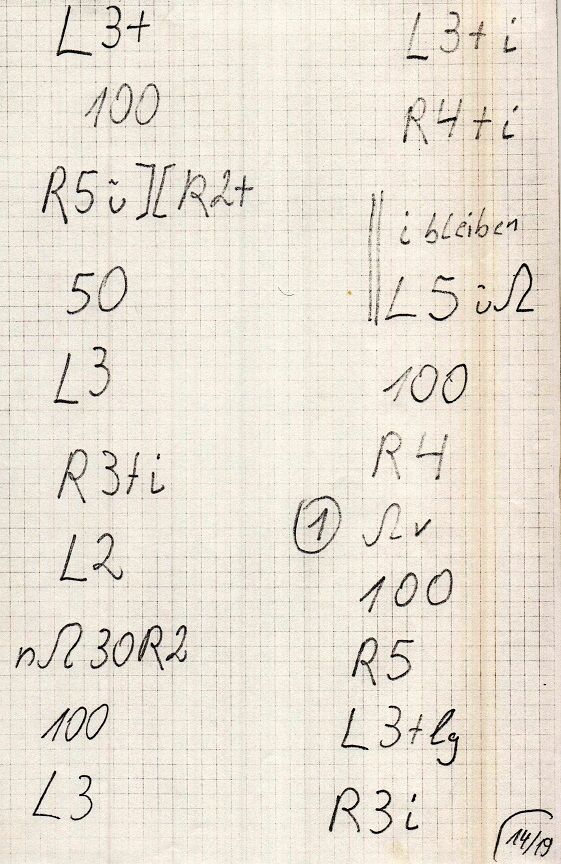 L3+
100
R5ü][R2+
50
L3
R3+i
L2
nΩ30R2
100
L3
L3+i
R4+i
i bleiben
L5üΩ
100
R4
① Ωv
100
R5
L3+lg
R3i
14/19